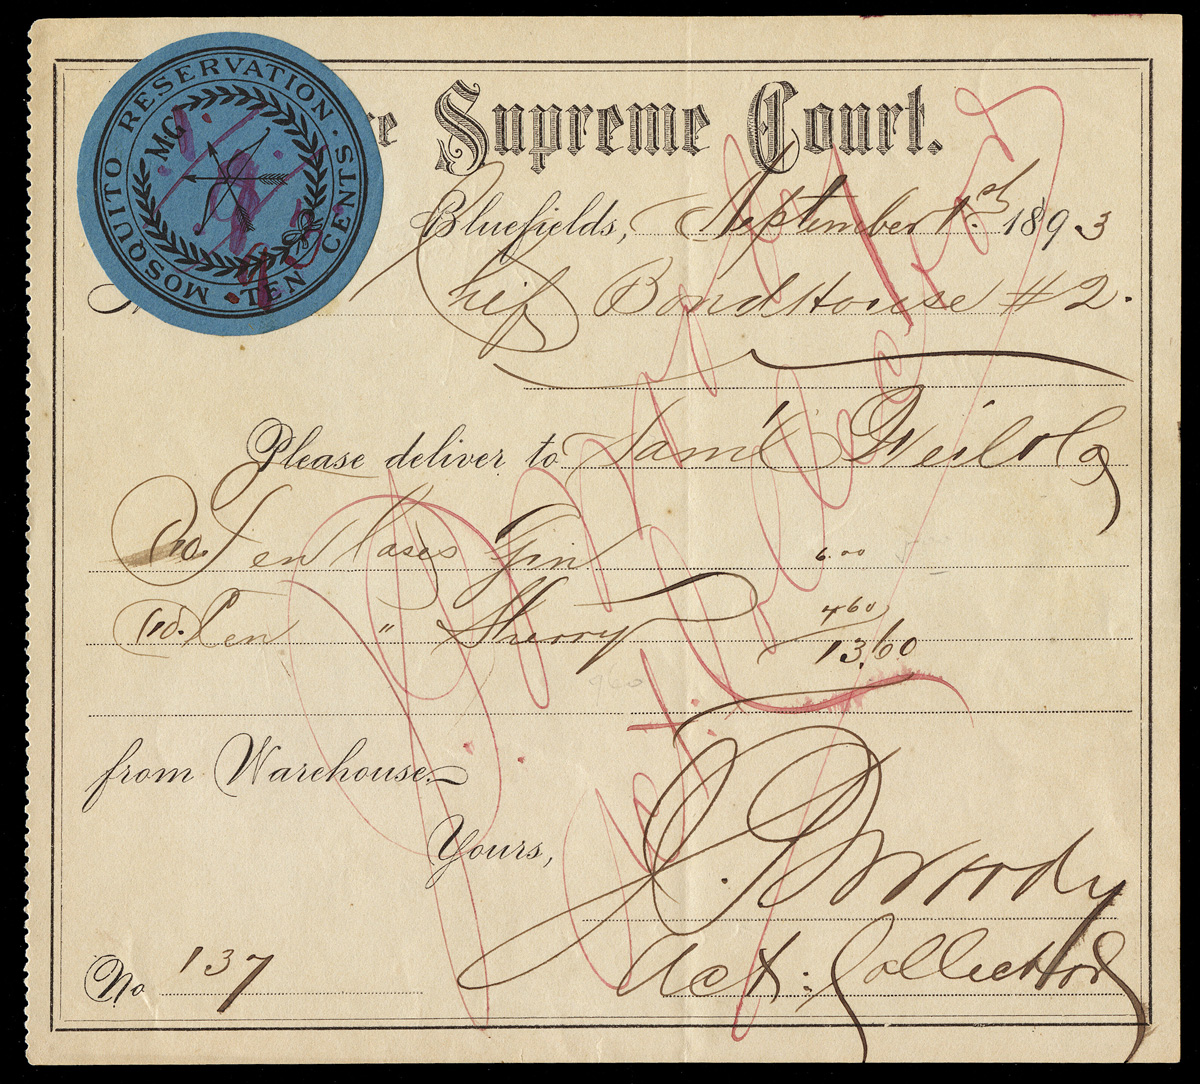 MOSQUITO RESERVATION · TEN CENTS ·
MG
re Supreme Court.
Bluefields, September 1st 1893
Chief Bond House #2.
Please deliver to Sam'l Weil & Co
(10.) Ten Cases Gin 6.00
(10.) Ten " Sherry 460
13.60
from Warehouse.
Yours,
J. Woody
Act. Collector
No 137